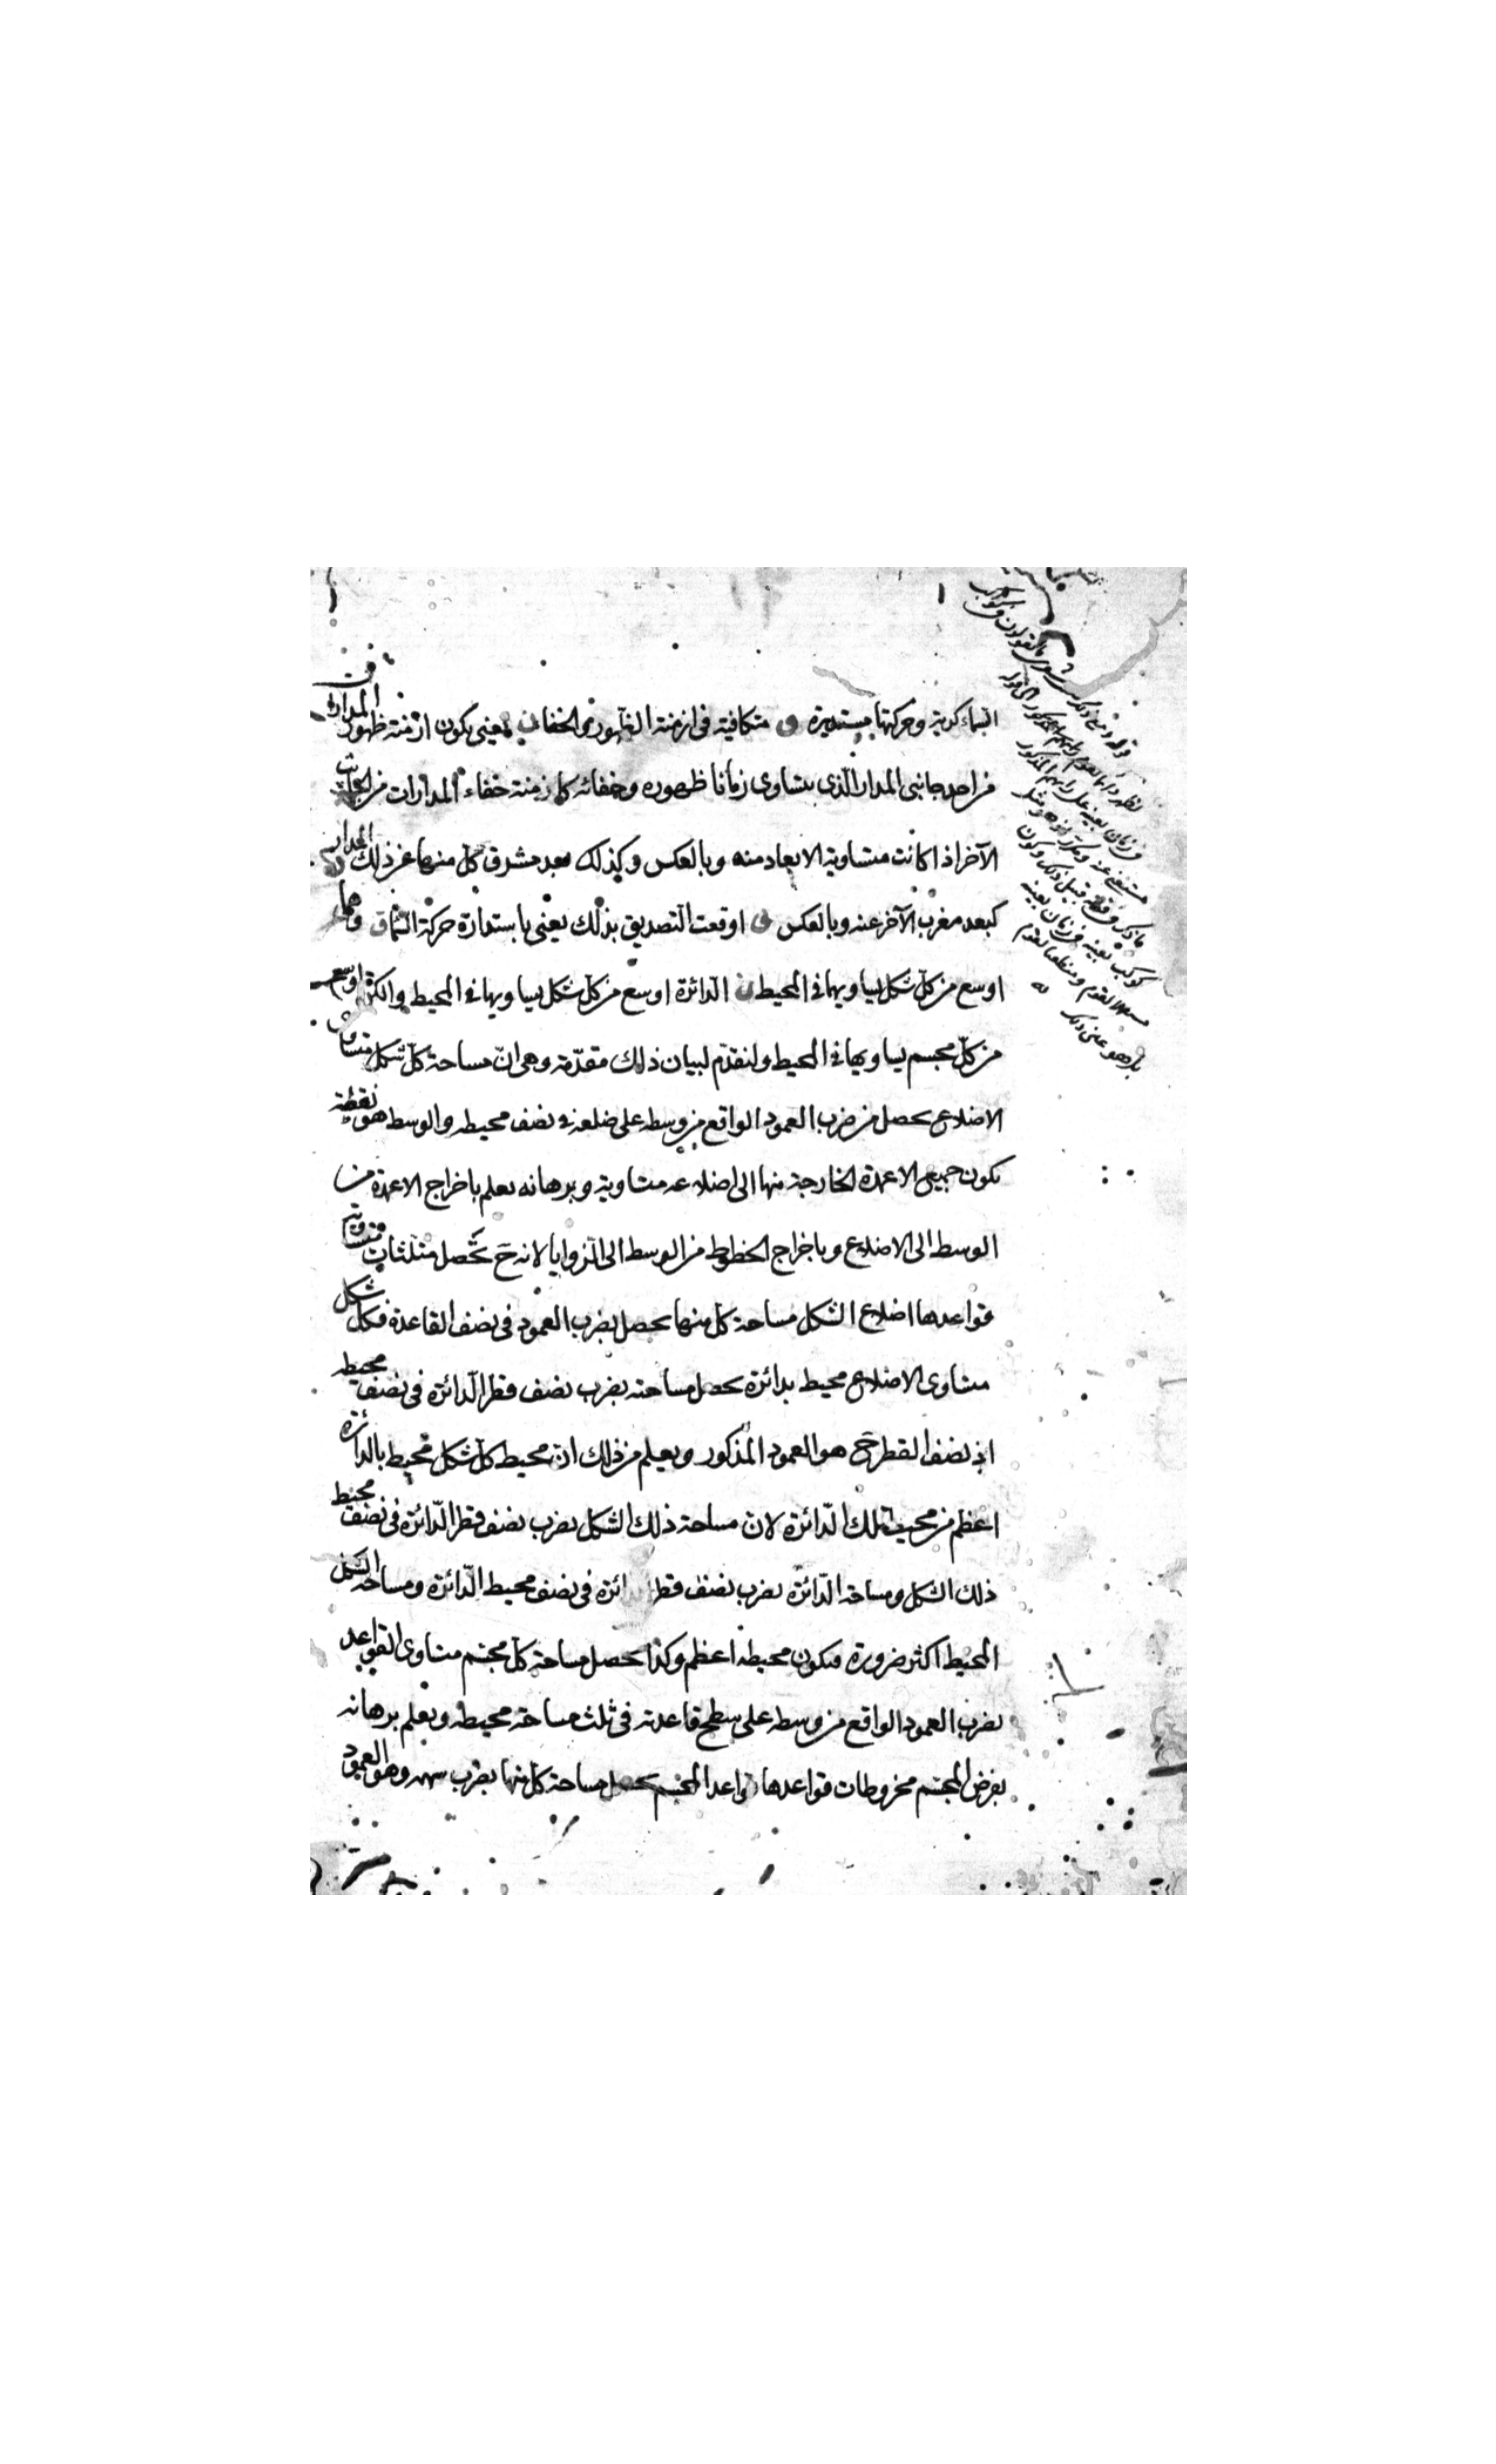 السماء كرية وحركتها مستديرة ف متكافية فى ازمنة الظهور والخفاء يعنى يكون ازمنة ظهور المدارات
من احد جانبى المدار الّذى يتساوى زمانا ظهوره وخفائه كازمنة خفاء المدارات من الجانب
الآخر اذا كانت متساوية الابعاد منه وبالعكس وكذلك بعد مشرق كل منهما عن ذلك المدار
كبعد مغرب الآخر عنه وبالعكس اوقعت التصديق بذلك يعنى باستدارة حركة السماء وهما
اوسع من كلّ شكل يساويهما فى المحيط الدّائرة اوسع من كلّ شكل يساويها فى المحيط والكرة اوسع
من كلّ مجسم يساويها فى المحيط ولنقدّم لبيان ذلك مقدّمة وهى انّ مساحة كلّ شكل متساوى
الاضلاع يحصل من ضرب العمود الواقع من وسطه على ضلعه فى نصف محيطه والوسط هو نقطة
يكون جميع الاعمدة الخارجة منها الى اضلاعه متساوية وبرهانه يعلم باخراج الاعمدة من
الوسط الى الاضلاع وباخراج الخطوط من الوسط الى الزوايا لانه ح تحصل مثلثات متساوية
قواعدها اضلاع الشكل مساحة كل منها يحصل بضرب العمود فى نصف القاعدة فكل شكل
متساوى الاضلاع محيط بدائرة يحصل مساحته بضرب نصف قطر الدّائرة فى نصف محيطه
اذ نصف القطر ح هو العمود المذكور ويعلم من ذلك ان محيط كلّ شكل محيط بالدائرة
اعظم من محيط تلك الدّائرة لان مساحة ذلك الشكل بضرب نصف قطر الدّائرة فى نصف محيط
ذلك الشكل ومساحة الدّائرة بضرب نصف قطر الدائرة فى نصف محيط الدّائرة ومساحة الشكل
المحيط اكثر ضرورة فيكون محيطه اعظم وكذا يحصل مساحة كلّ مجسّم متساوى القواعد
بضرب العمود الواقع من وسطه على سطح قاعدته فى ثلث مساحة محيطه ويعلم برهانه
بفرض المجسّم مخروطات قواعدها قواعد المجسم يحصل مساحة كل منها بضرب سهمه وهو العمود